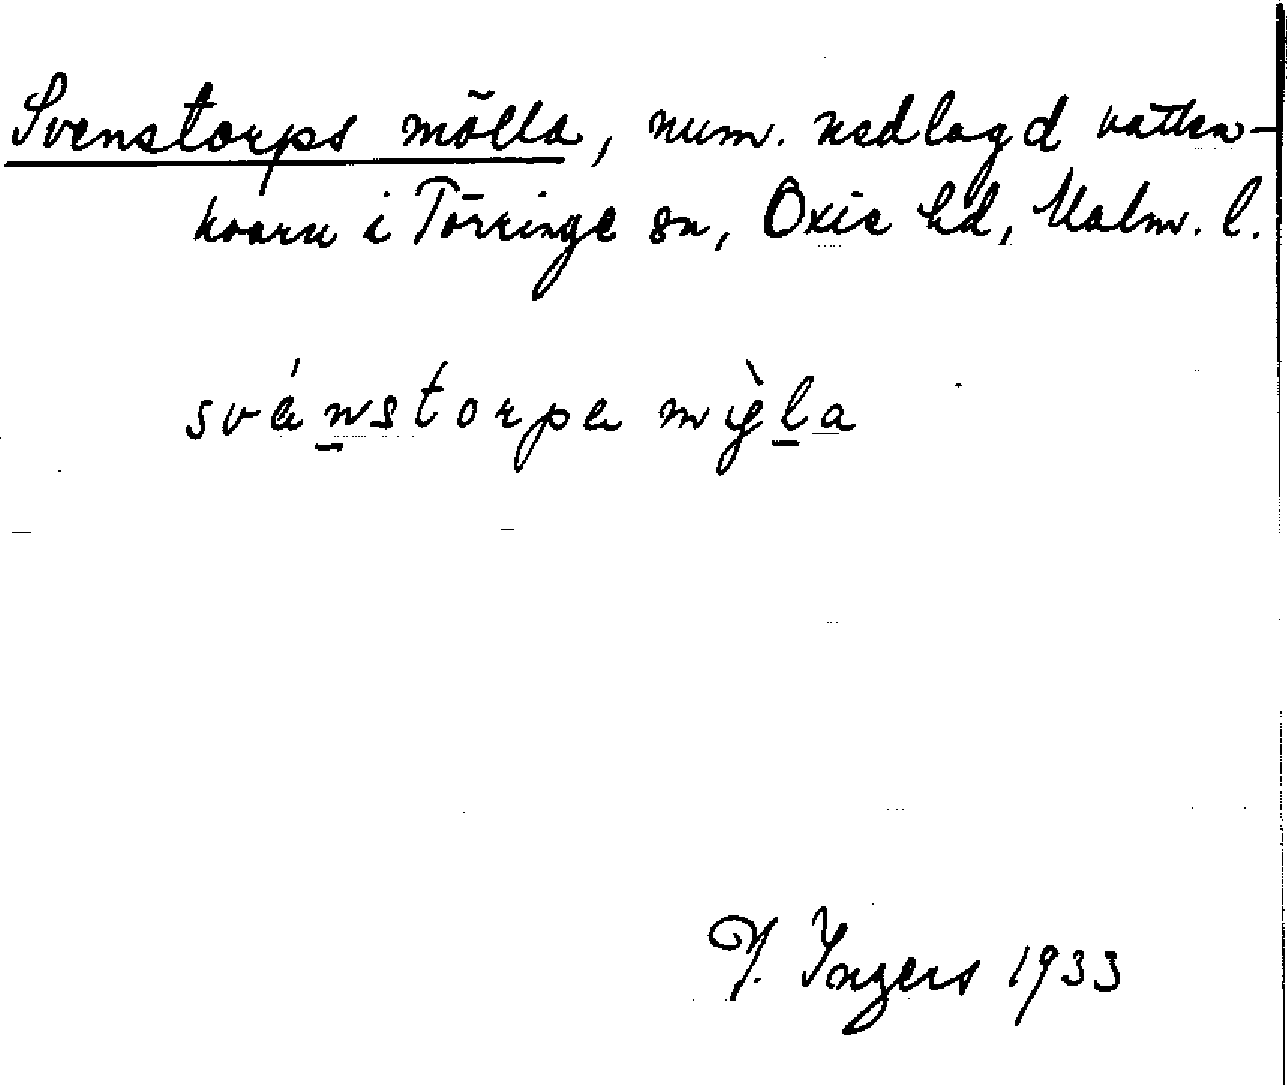 Svenstorps mölla, num. nedlagd vatten-
kvarn i Törringe sn, Oxie hd, Malm. l.
svǽn̲storpa mỳl̲a
I. Ingers 1933